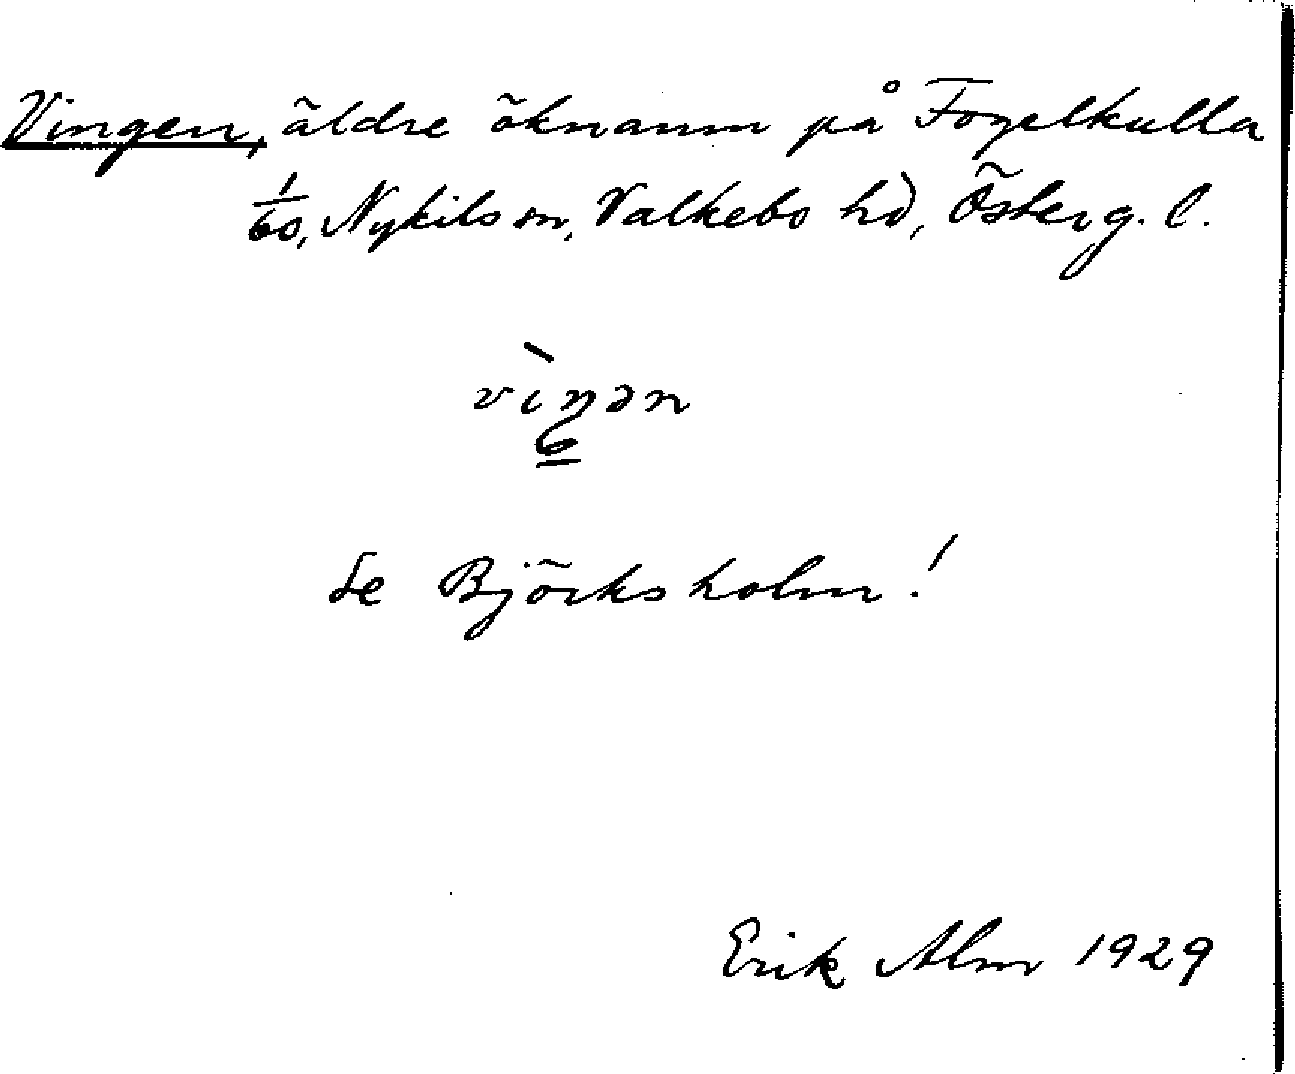 Vingen, äldre öknamn på Fogelkulla
1/60, Nykils sn, Valkebo hd, Österg. l.
vìŋən
Se Björksholm!
Erik Alm 1929